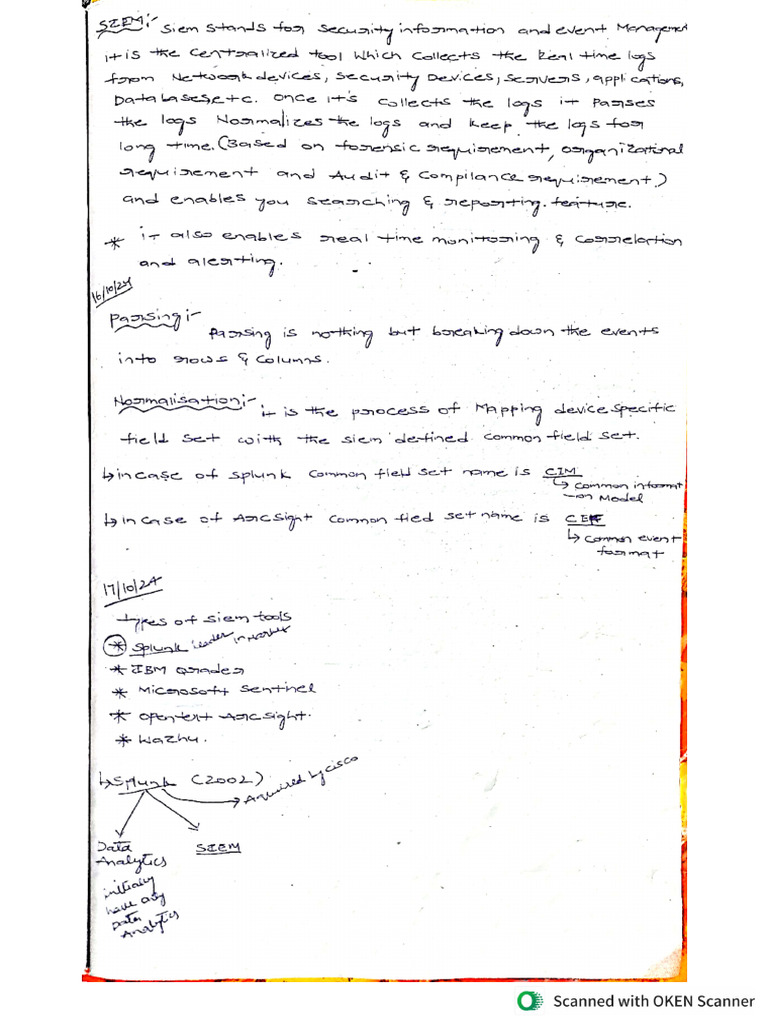 SIEM:- Siem stands for security information and event Management
it is the centralized tool which collects the Real time logs
from Network devices, security Devices, servers, applications,
Databases etc. once it's collects the logs it Parses
the logs Normalizes the logs and keep the logs for
long time. (Based on forensic requirement, organizational
requirement and Audit & Compilance requirement.)
and enables you searching & reporting. feature.
* it also enables real time monitoring & correlation
and alerting.
16/10/24
Parsing:-
Parsing is nothing but breaking down the events
into rows & columns.
Normalisation:- it is the process of Mapping device specific
field set with the siem defined common field set.
↳ in case of splunk common field set name is CIM
↳ common informat
-on Model
↳ in case of ArcSight common fied set name is CEF
↳ common event
format
17/10/24
types of siem tools
* Splunk Leader in Market
* IBM Qrader
* Microsoft Sentinel
* opentext Arcsight.
* Wazhu.
↳ Splunk (2002)
→ Acquired by cisco
Data
Analytics
SIEM
initially
have only
Data
Analytics
Scanned with OKEN Scanner